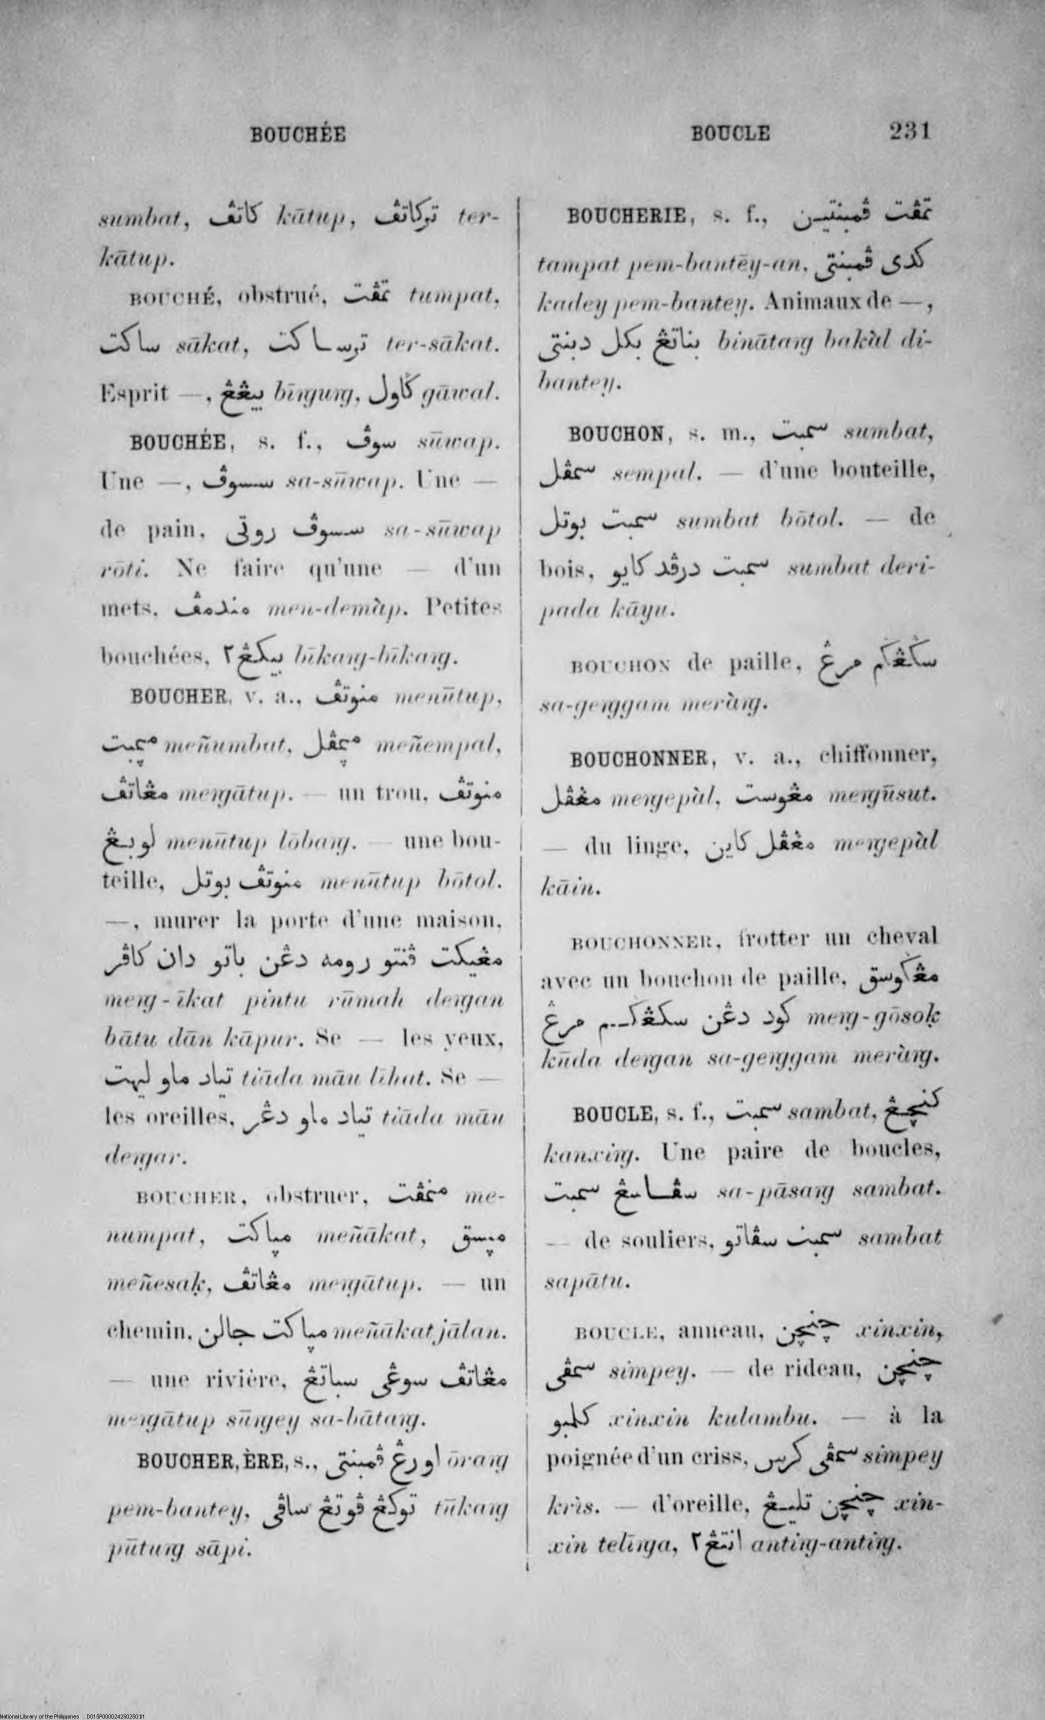 BOUCHÉE
BOUCLE 231
sumbat, كاتڤ kātup, تركاتڤ ter-
kātup.
BOUCHÉ, obstrué, تمڤت tumpat,
ساكت sākat, ترساكت ter-sākat.
Esprit —, بيڠڠ bīngung, ݢاول gāwal.
BOUCHÉE, s. f., سوڤ sūwap.
Une —, سسوڤ sa-sūwap. Une —
de pain, سسوڤ روتي sa-sūwap
rōti. Ne faire qu'une — d'un
mets, مندمڤ men-demàp. Petites
bouchées, بيكڠ٢ bīkang-bīkang.
BOUCHER, v. a., منوتڤ menūtup,
meñumbat, meñempal,
مڠاتڤ mengātup. — un trou, منوتڤ
لوبڠ menūtup lōbang. — une bou-
teille, منوتڤ بوتل menūtup bōtol.
—, murer la porte d'une maison,
مڠيكت ڤنتو رومه دڠن باتو دان كاڤر
meng-īkat pintu rūmah dengan
bātu dān kāpur. Se — les yeux,
تياد ماو ليهت tiāda māu līhat. Se —
les oreilles, تياد ماو دڠر tiāda māu
dengar.
BOUCHER, obstruer, منمڤت me-
numpat, meñākat,
meñesaḳ, مڠاتڤ mengātup. — un
chemin, meñākat jālan.
— une rivière, مڠاتڤ سوڠي سباتڠ
mengātup sūngey sa-bātang.
BOUCHER, ÈRE, s., اورڠ ڤمبنتي ōrang
pem-bantey, توكڠ ڤوتڠ ساڤي tūkang
pūtung sāpi.
BOUCHERIE, s. f., تمڤت ڤمبنتين
tampat pem-bantēy-an, كدي ڤمبنتي
kadey pem-bantey. Animaux de —,
بناتڠ بكل دبنتي binātang bakàl di-
bantey.
BOUCHON, s. m., سمبت sumbat,
سمڤل sempal. — d'une bouteille,
سمبت بوتل sumbat bōtol. — de
bois, سمبت درڤد كايو sumbat deri-
pada kāyu.
BOUCHON de paille, سݢڠݢم مرڠ
sa-genggam meràng.
BOUCHONNER, v. a., chiffonner,
مڠڤل mengepàl, مڠوست mengūsut.
— du linge, مڠڤل كاين mengepàl
kāin.
BOUCHONNER, frotter un cheval
avec un bouchon de paille, مڠݢوسق
كود دڠن سݢڠݢم مرڠ meng-gōsoḳ
kūda dengan sa-genggam meràng.
BOUCLE, s. f., سمبت sambat, كنچڠ
kanxing. Une paire de boucles,
سڤاسڠ سمبت sa-pāsang sambat.
— de souliers, سمبت سڤاتو sambat
sapātu.
BOUCLE, anneau, چنچن xinxin,
سمڤي simpey. — de rideau, چنچن
كلمبو xinxin kulambu. — à la
poignée d'un criss, سمڤي كرس simpey
krìs. — d'oreille, چنچن تليڠ xin-
xin telīnga, انتڠ٢ anting-anting.
National Library of the Philippines